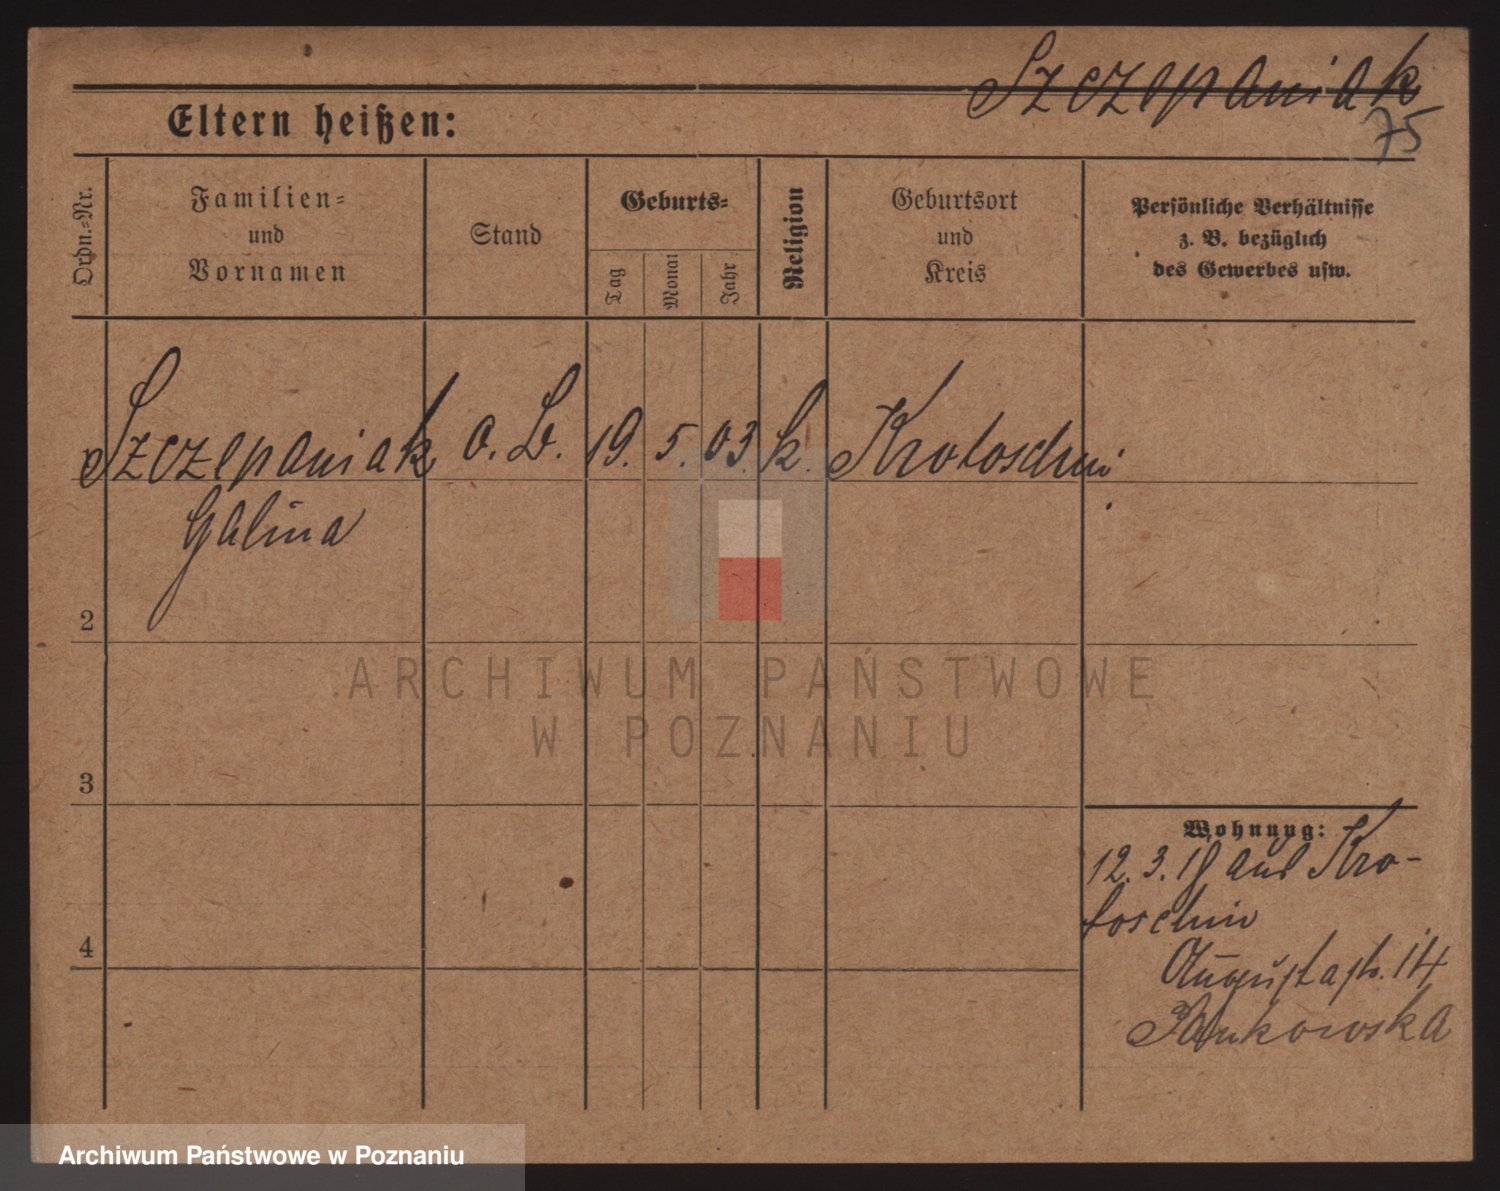 Szczepaniak
75
Eltern heißen:
Ordn.-Nr.
Familien-
und
Vornamen
Stand
Geburts-
Tag
Monat
Jahr
Religion
Geburtsort
und
Kreis
Persönliche Verhältnisse
z. B. bezüglich
des Gewerbes usw.
Szczepaniak o. B. 19. 5. 03. k. Krotoschin
Galina
2
3
4
ARCHIWUM PAŃSTWOWE
W POZNANIU
Wohnung:
12. 3. 18 aus Kro-
toschin
Augustastr. 14
Pankowska
Archiwum Państwowe w Poznaniu